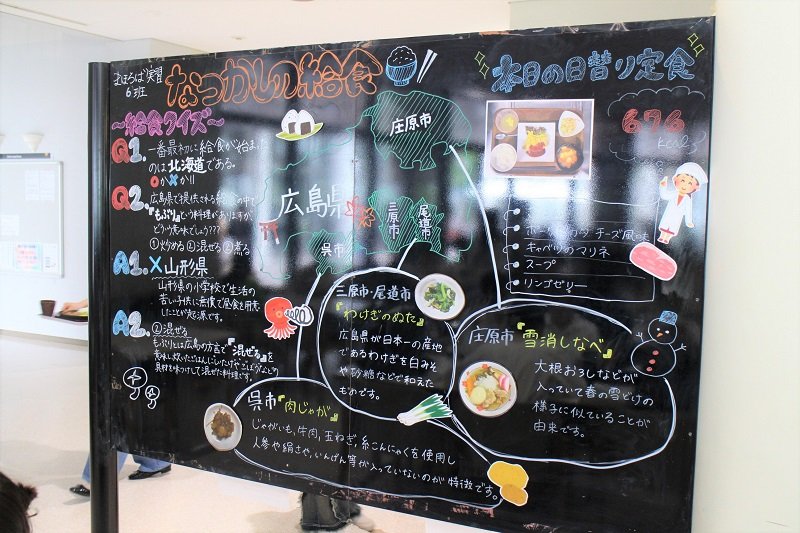 まほろば実習
6班
なつかしの給食
～給食クイズ～
Q1. 一番最初に給食が始まった
のは北海道である。
○か×か!!
Q2. 広島県で提供される給食の中で
『もぶり』という料理がありますが、
どういう意味でしょう???
①炒める ②混ぜる ③煮る
A1. × 山形県
山形県の小学校で生活の
苦しい子供に無償で昼食を用意
したことが起源です。
A2. ②混ぜる
もぶりとは広島の方言で『混ぜる』を
意味し炊いたごはんに
具材を味つけして混ぜた料理です。
庄原市
広島県
三原市
尾道市
呉市
本日の日替り定食
676
kcal
チーズ風味
キャベツのマリネ
スープ
リンゴゼリー
三原市・尾道市
『わけぎのぬた』
広島県が日本一の産地
であるわけぎを白みそ
や砂糖などで和えた
ものです。
庄原市『雪消しなべ』
大根おろしなどが
入っていて春の雪どけの
様子に似ていることが
由来です。
呉市『肉じゃが』
じゃがいも,牛肉,玉ねぎ,糸こんにゃくを使用し
人参や絹さや,いんげん等が入っていないのが特徴です。